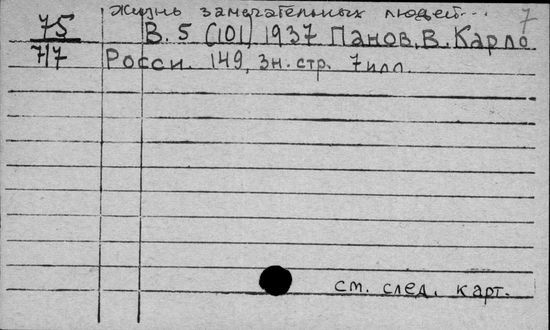 Жизнь замечательных людей... 7
75 В. 5 (101) 1937 Панов, В. Карло
7/7 Росси. 149, 3н. стр. 7 илл.
см. след. карт.